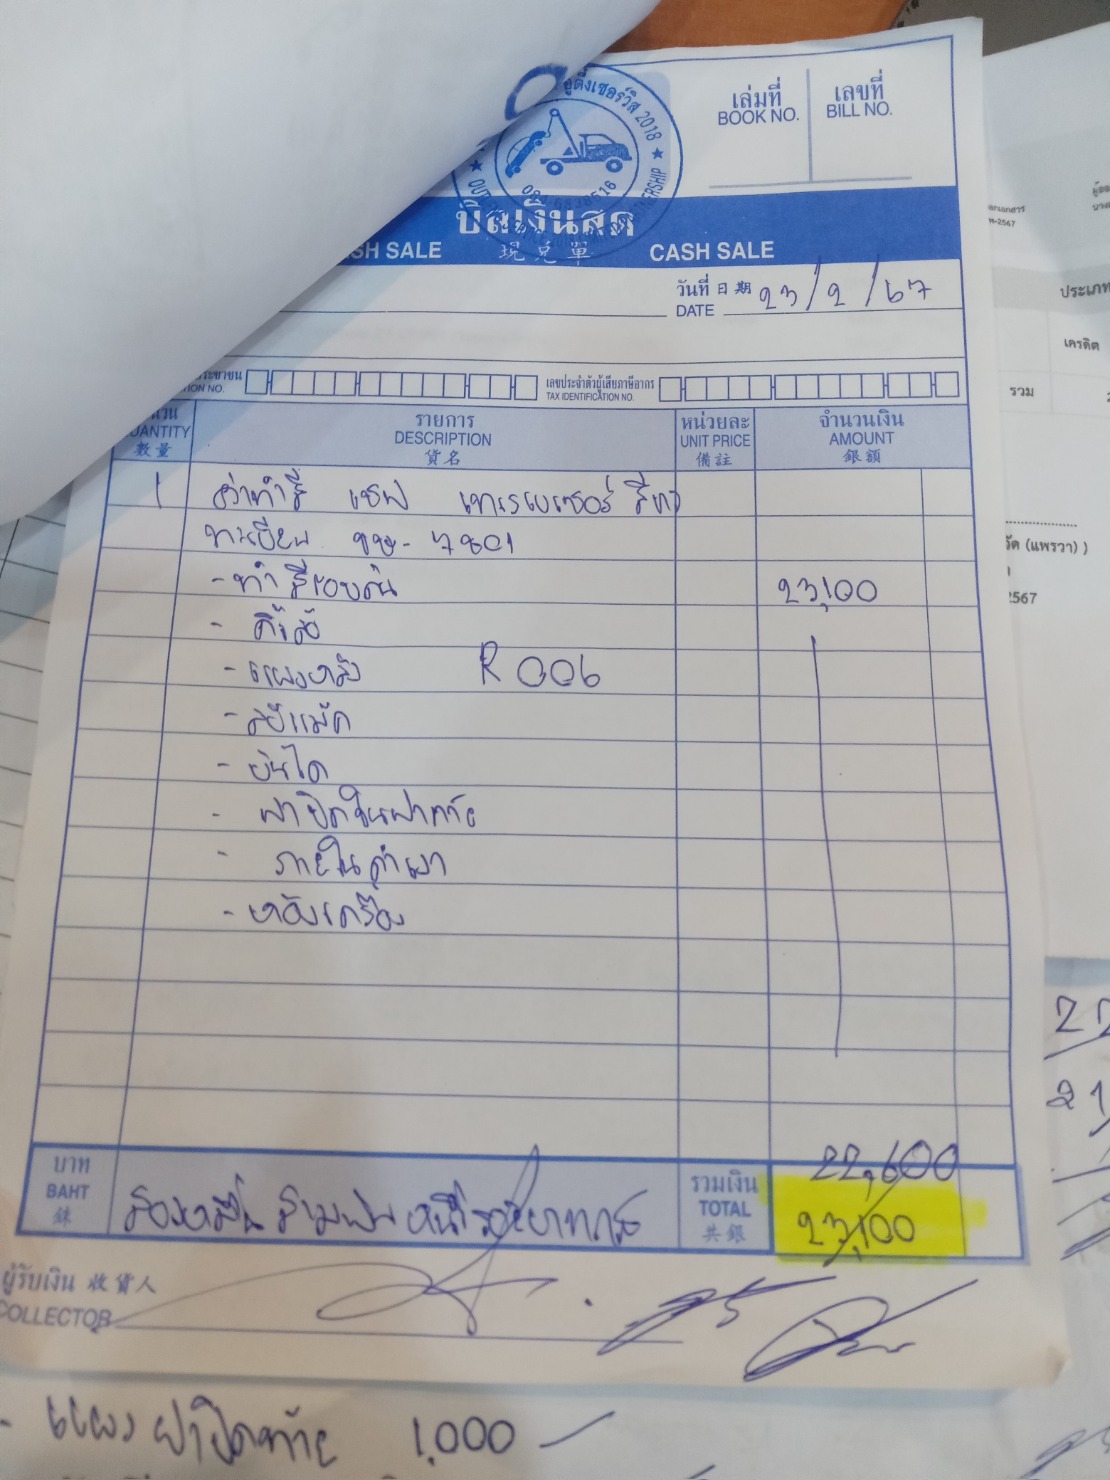 เล่มที่ เลขที่
BOOK NO. BILL NO.
อู่ติ่งเซอร์วิส 2018
บิลเงินสด
SH SALE 現兌單 CASH SALE
วันที่ 日期 23/2/67
DATE
ประชาชน
ION NO.
เลขประจำตัวผู้เสียภาษีอากร
TAX IDENTIFICATION NO.
รายการ หน่วยละ จำนวนเงิน
UANTITY DESCRIPTION UNIT PRICE AMOUNT
數量 貨名 備註 銀額
1 ค่าทำสี เชฟ เทรลเบเซอร์ สีเทา
ทะเบียน ขษ-7801
- ทำสีรอบคัน 23,100
- คิ้วล้อ
- แผงหลัง R006
- ล้อแม็ค
- บันได
- ฝาปิดในฝาท้าย
- ภายในดำเงา
- ห้องเครื่อง
22,600
บาท
BAHT สองหมื่นสามพันหนึ่งร้อยบาทถ้วน
銖
รวมเงิน
TOTAL 23,100
共銀
ผู้รับเงิน 收貨人
COLLECTOR
- แผงฝาปิดท้าย 1,000
2567
ประเภท
เครดิต
รวม
(แพรวา) )
2567